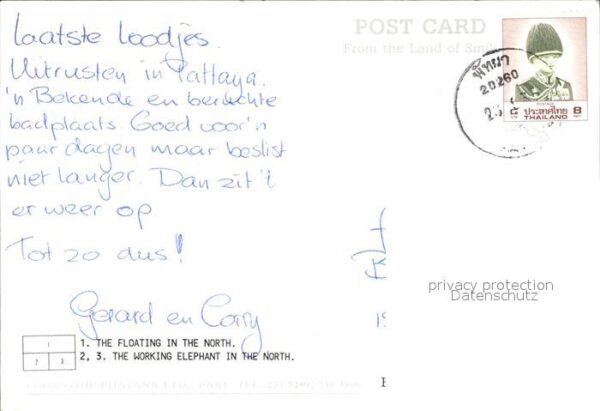 laatste loodjes.
Uitrusten in Pattaya.
'n Bekende en beruchte
badplaats. Goed voor 'n
paar dagen maar beslist
niet langer. Dan zit 't
er weer op
Tot zo dus!
Gerard en Corry
POST CARD
From the Land of Smil
พัทยา
20260
ประเทศไทย 8
THAILAND
privacy protection
Datenschutz
1
2 3
1. THE FLOATING IN THE NORTH.
2, 3. THE WORKING ELEPHANT IN THE NORTH.